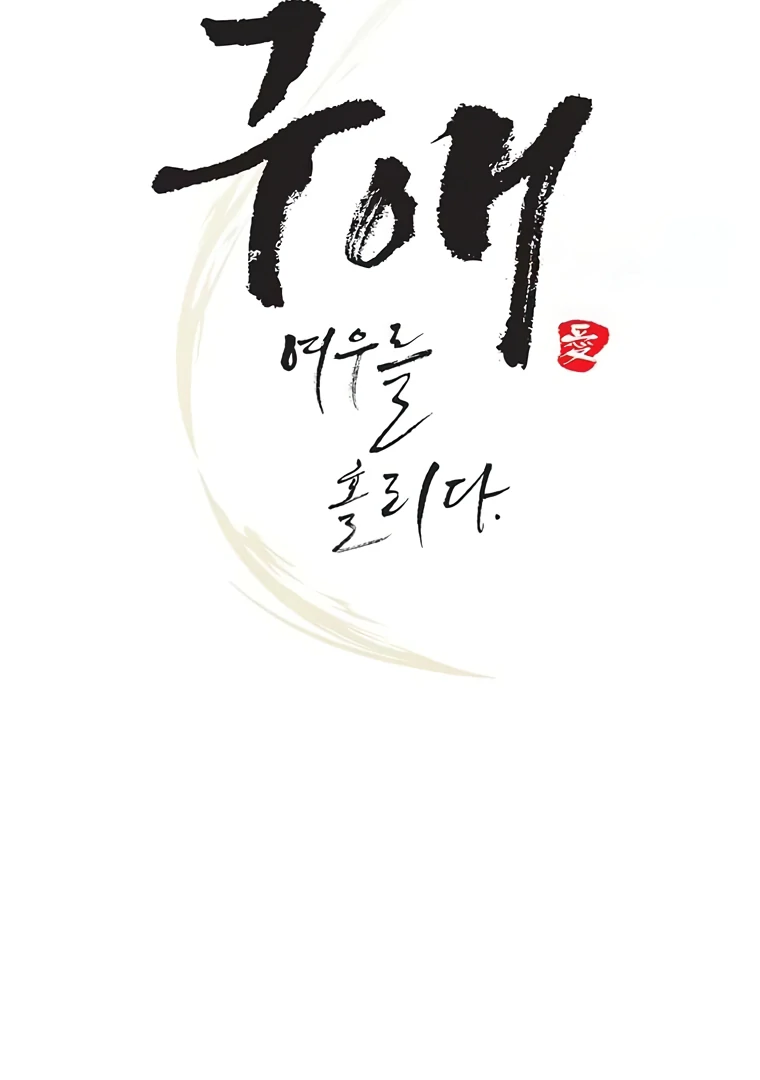 구애
여우를
홀리다.
愛